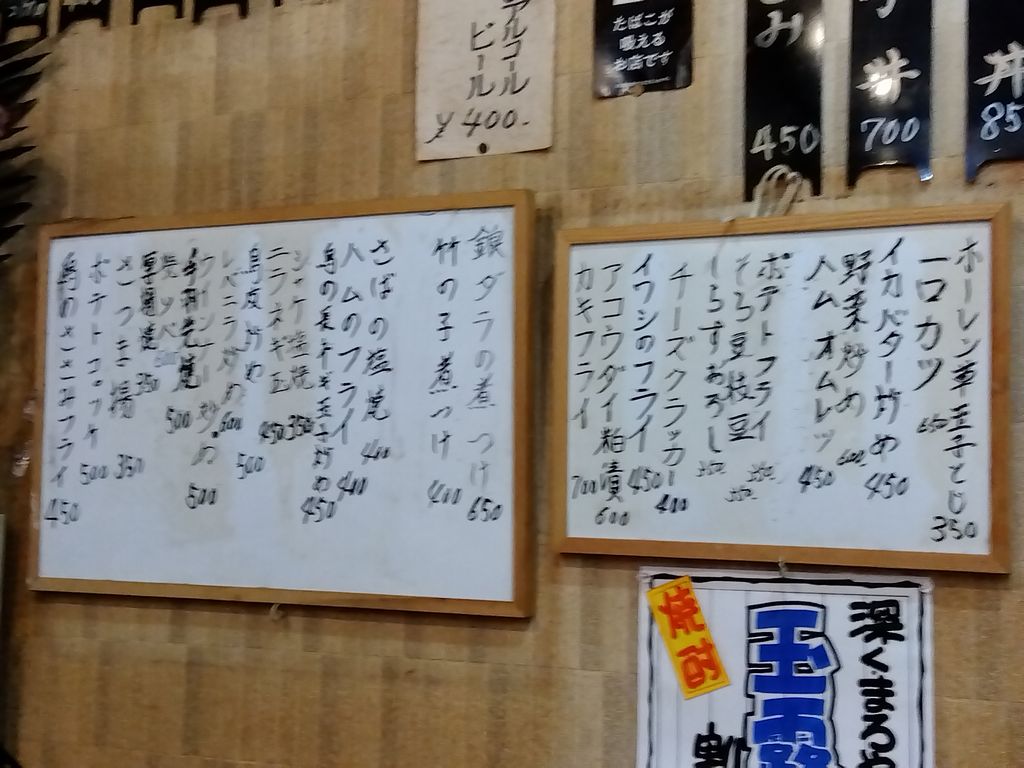 アルコール
ビール
¥400-
たばこが
吸える
お店です
み
450
丼
700
丼
85
ホーレン草玉子とじ 350
一口カツ 650
イカバター炒め 450
野菜炒め 600
ハムオムレツ 450
ポテトフライ 350
そら豆 枝豆 350
しらすおろし 350
チーズクラッカー 400
イワシのフライ 450
アコウダイ粕漬 600
カキフライ 700
銀ダラの煮つけ 650
竹の子煮つけ 400
さばの塩焼 400
ハムのフライ 400
鳥の長ネギ玉子炒め 450
シャケ塩焼 350
ニラネギ玉 450
鳥皮炒め 500
レバニラ炒め 600
ウインナー炒め 500
500
厚揚焼 350
さつま揚 350
ポテトコロッケ 500
鳥のささみフライ 450
焼酎
深くまろや
玉露
割